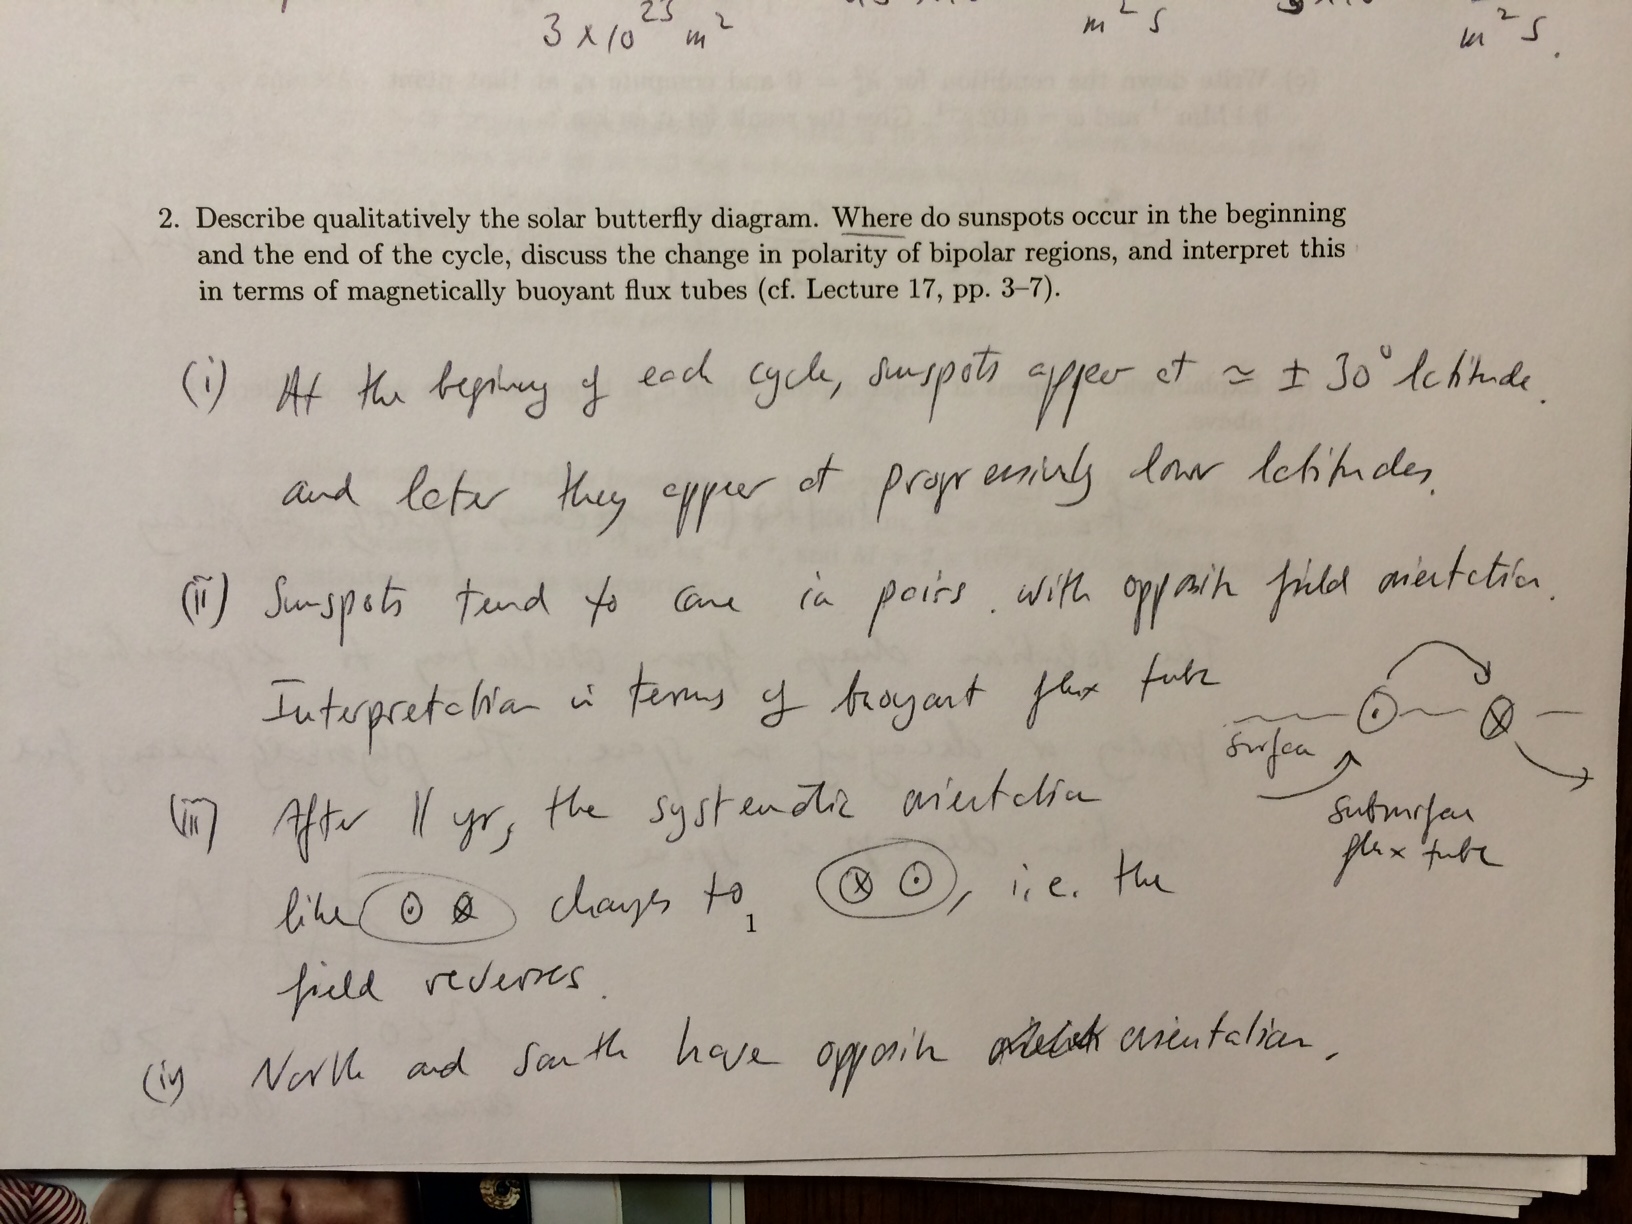 3 × 10²³ m²
m² s
m² s.
2. Describe qualitatively the solar butterfly diagram. Where do sunspots occur in the beginning
and the end of the cycle, discuss the change in polarity of bipolar regions, and interpret this
in terms of magnetically buoyant flux tubes (cf. Lecture 17, pp. 3–7).
(i) At the beginning of each cycle, sunspots appear at ≃ ± 30° latitude.
and later they appear at progressively lower latitudes.
(ii) Sunspots tend to come in pairs. with opposite field orientation.
Interpretation in terms of buoyant flux tube
surface ⊙ ⊗
subsurface
flux tube
(iii) After 11 yr, the systematic orientation
like ⊙ ⊗ changes to ⊗ ⊙, i.e. the
1
field reverses.
(iv) North and South have opposite orientation.